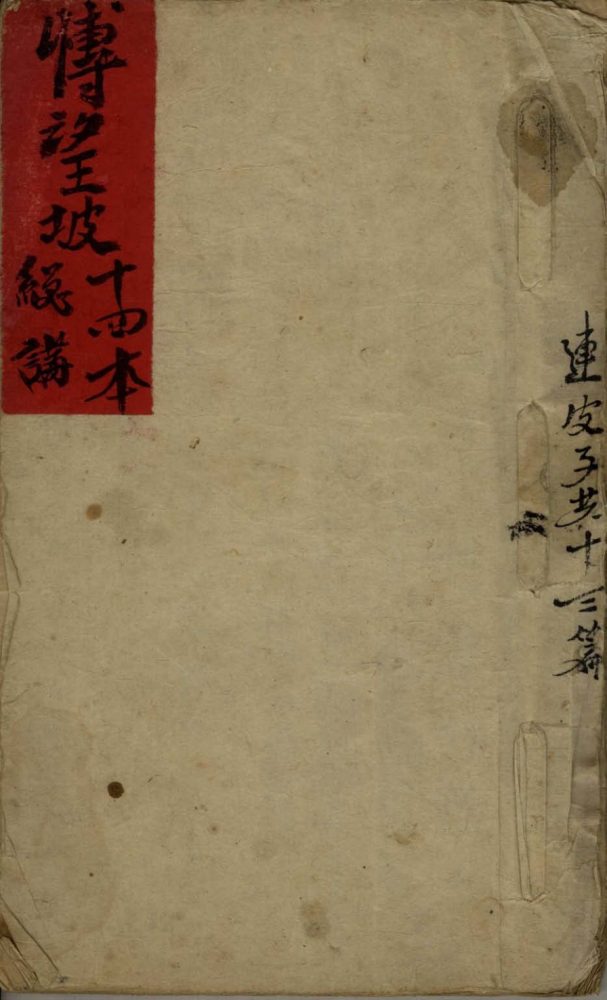 連皮子共十三篇
博望坡
十四本
總講